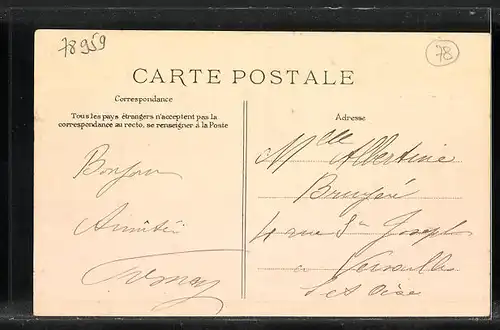 78959
78
CARTE POSTALE
Correspondance
Tous les pays étrangers n'acceptent pas la
correspondance au recto, se renseigner à la Poste
Adresse
Bonjour
Amitié
Mlle Albertine
Bruyère
4 rue St Joseph
a Versailles
S et Oise